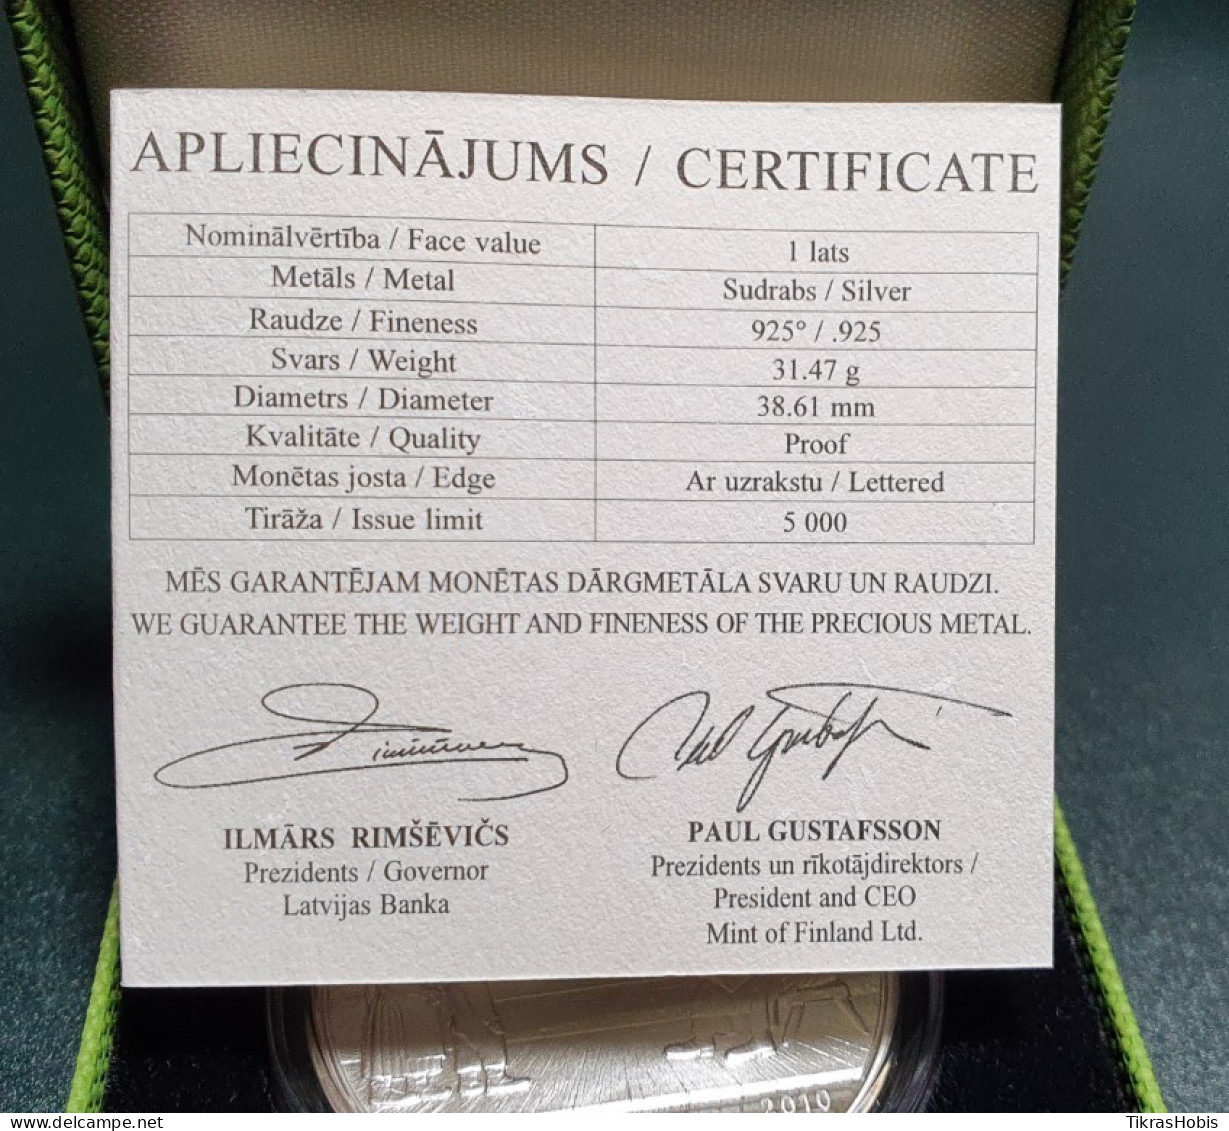 APLIECINĀJUMS / CERTIFICATE
Nominālvērtība / Face value 1 lats
Metāls / Metal Sudrabs / Silver
Raudze / Fineness 925° / .925
Svars / Weight 31.47 g
Diametrs / Diameter 38.61 mm
Kvalitāte / Quality Proof
Monētas josta / Edge Ar uzrakstu / Lettered
Tirāža / Issue limit 5 000
MĒS GARANTĒJAM MONĒTAS DĀRGMETĀLA SVARU UN RAUDZI.
WE GUARANTEE THE WEIGHT AND FINENESS OF THE PRECIOUS METAL.
ILMĀRS RIMŠĒVIČS
Prezidents / Governor
Latvijas Banka
PAUL GUSTAFSSON
Prezidents un rīkotājdirektors /
President and CEO
Mint of Finland Ltd.
2010
TikrasHobis